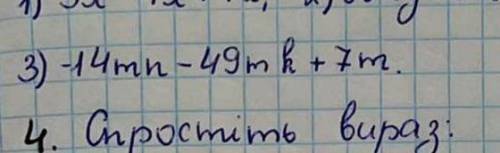 3) -14mn - 49mk + 7m.
4. Спростіть вираз: